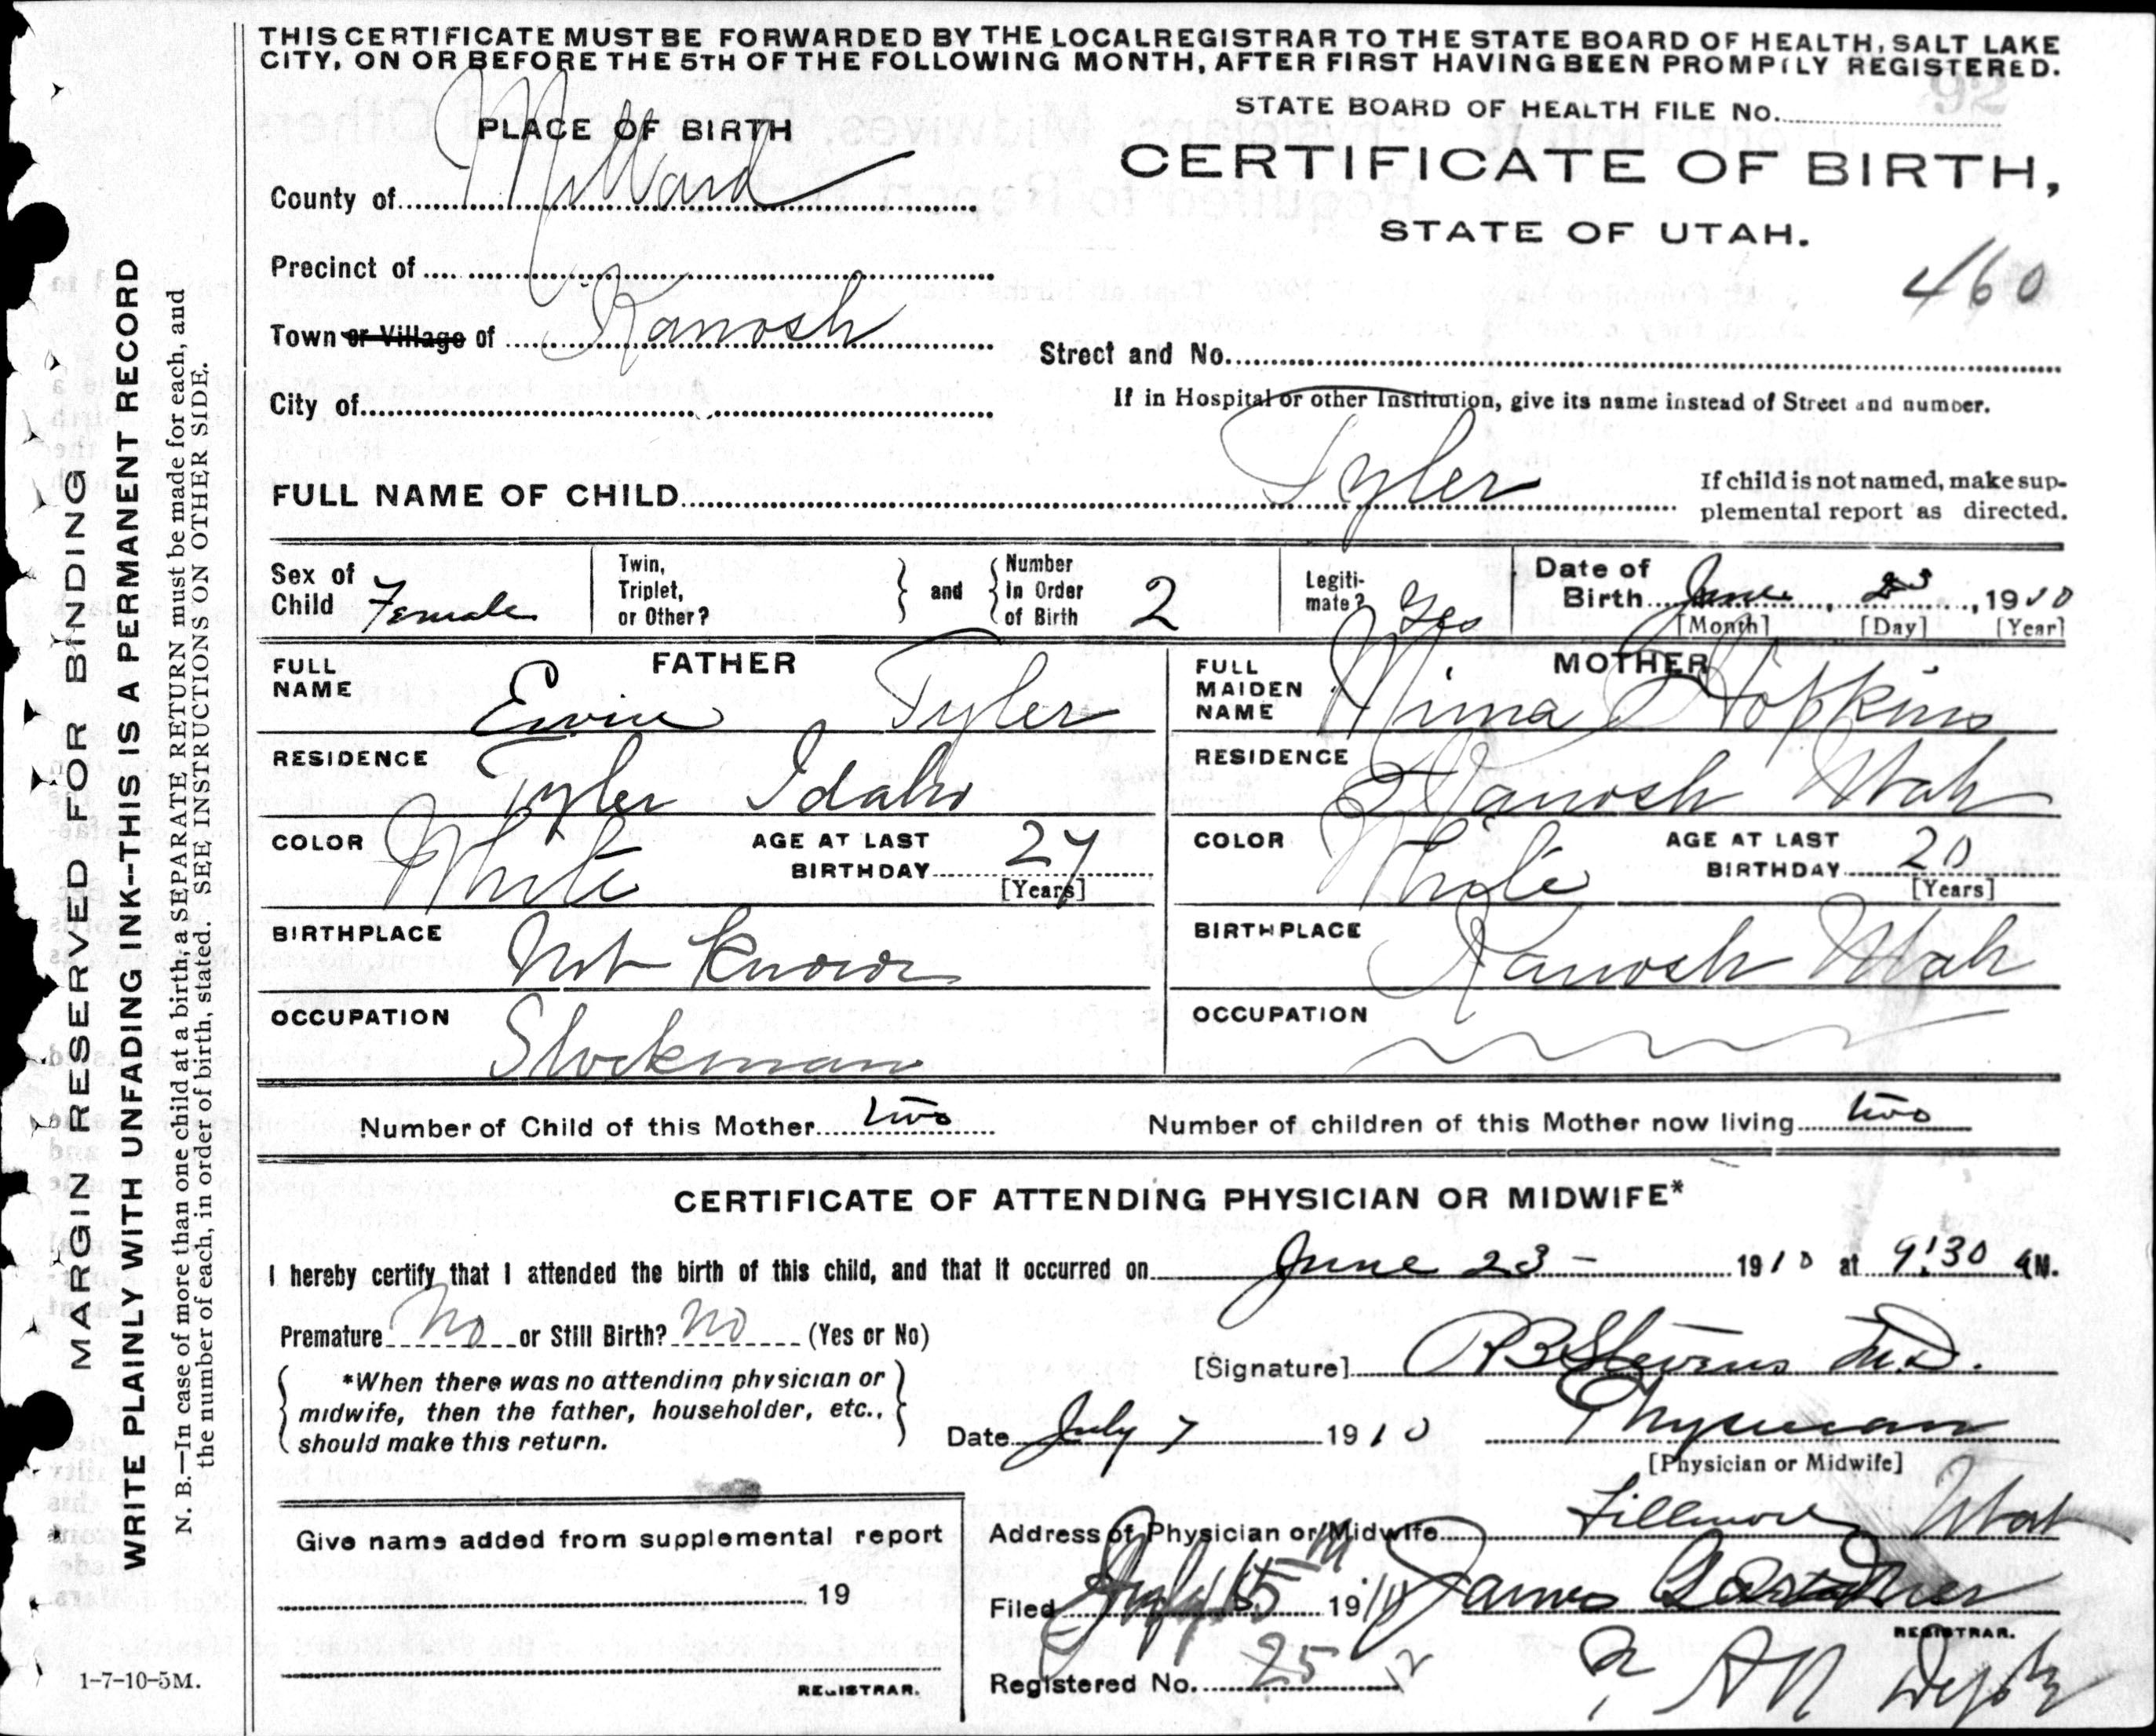 THIS CERTIFICATE MUST BE FORWARDED BY THE LOCAL REGISTRAR TO THE STATE BOARD OF HEALTH, SALT LAKE
CITY, ON OR BEFORE THE 5TH OF THE FOLLOWING MONTH, AFTER FIRST HAVING BEEN PROMPTLY REGISTERED.
STATE BOARD OF HEALTH FILE No.
92
PLACE OF BIRTH
CERTIFICATE OF BIRTH,
STATE OF UTAH.
County of Millard
460
Precinct of
Town or Village of Kanosh
Street and No.
City of
If in Hospital or other Institution, give its name instead of Street and number.
FULL NAME OF CHILD Tyler
If child is not named, make sup-
plemental report as directed.
Sex of Child Female
Twin, Triplet, or Other?
and
Number In Order of Birth 2
Legiti-mate? Yes
Date of Birth June 23, 1910
[Month] [Day] [Year]
FATHER
FULL NAME Tyler
RESIDENCE Tyler Idaho
COLOR White AGE AT LAST BIRTHDAY 27 [Years]
BIRTHPLACE Not Known
OCCUPATION Stockman
MOTHER
FULL MAIDEN NAME Nima Hopkins
RESIDENCE Kanosh Utah
COLOR White AGE AT LAST BIRTHDAY 20 [Years]
BIRTHPLACE Kanosh Utah
OCCUPATION
Number of Child of this Mother two
Number of children of this Mother now living two
CERTIFICATE OF ATTENDING PHYSICIAN OR MIDWIFE*
I hereby certify that I attended the birth of this child, and that it occurred on June 23 - 1910 at 9:30 AM.
Premature No or Still Birth? No (Yes or No)
[Signature] R B Stevens M.D.
*When there was no attending physician or
midwife, then the father, householder, etc.,
should make this return.
Date July 7 1910
Physician
[Physician or Midwife]
Address of Physician or Midwife Fillmore Utah
Give name added from supplemental report
19
REGISTRAR.
Filed July 15th 1910 James
REGISTRAR.
Registered No. 25
MARGIN RESERVED FOR BINDING
WRITE PLAINLY WITH UNFADING INK--THIS IS A PERMANENT RECORD
N. B.—In case of more than one child at a birth, a SEPARATE RETURN must be made for each, and
the number of each, in order of birth, stated. SEE INSTRUCTIONS ON OTHER SIDE.
1-7-10-5M.